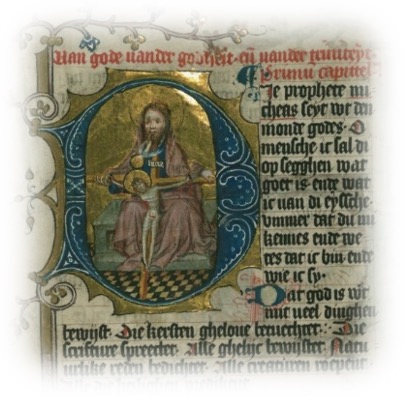 Uan gode uander godheit. eñ uander triniteyt.
primū capittel
DIe prophete mi
cheas seyt wt den
monde godes. O
mensche ic sal di
op segghen wat
goet is ende wat
ic uan di eyssche.
ummer dat du mi
kennes ende we
tes dat ic bin ende
wie ic sy.
Dat god is wt
mit ueel dinghen
bewijst. Die kersten gheloue betuechtet. Die
scrifture spreectet. Alle ghelijc bewijstet. Natu
urlike reden Alle creaturen roepent.